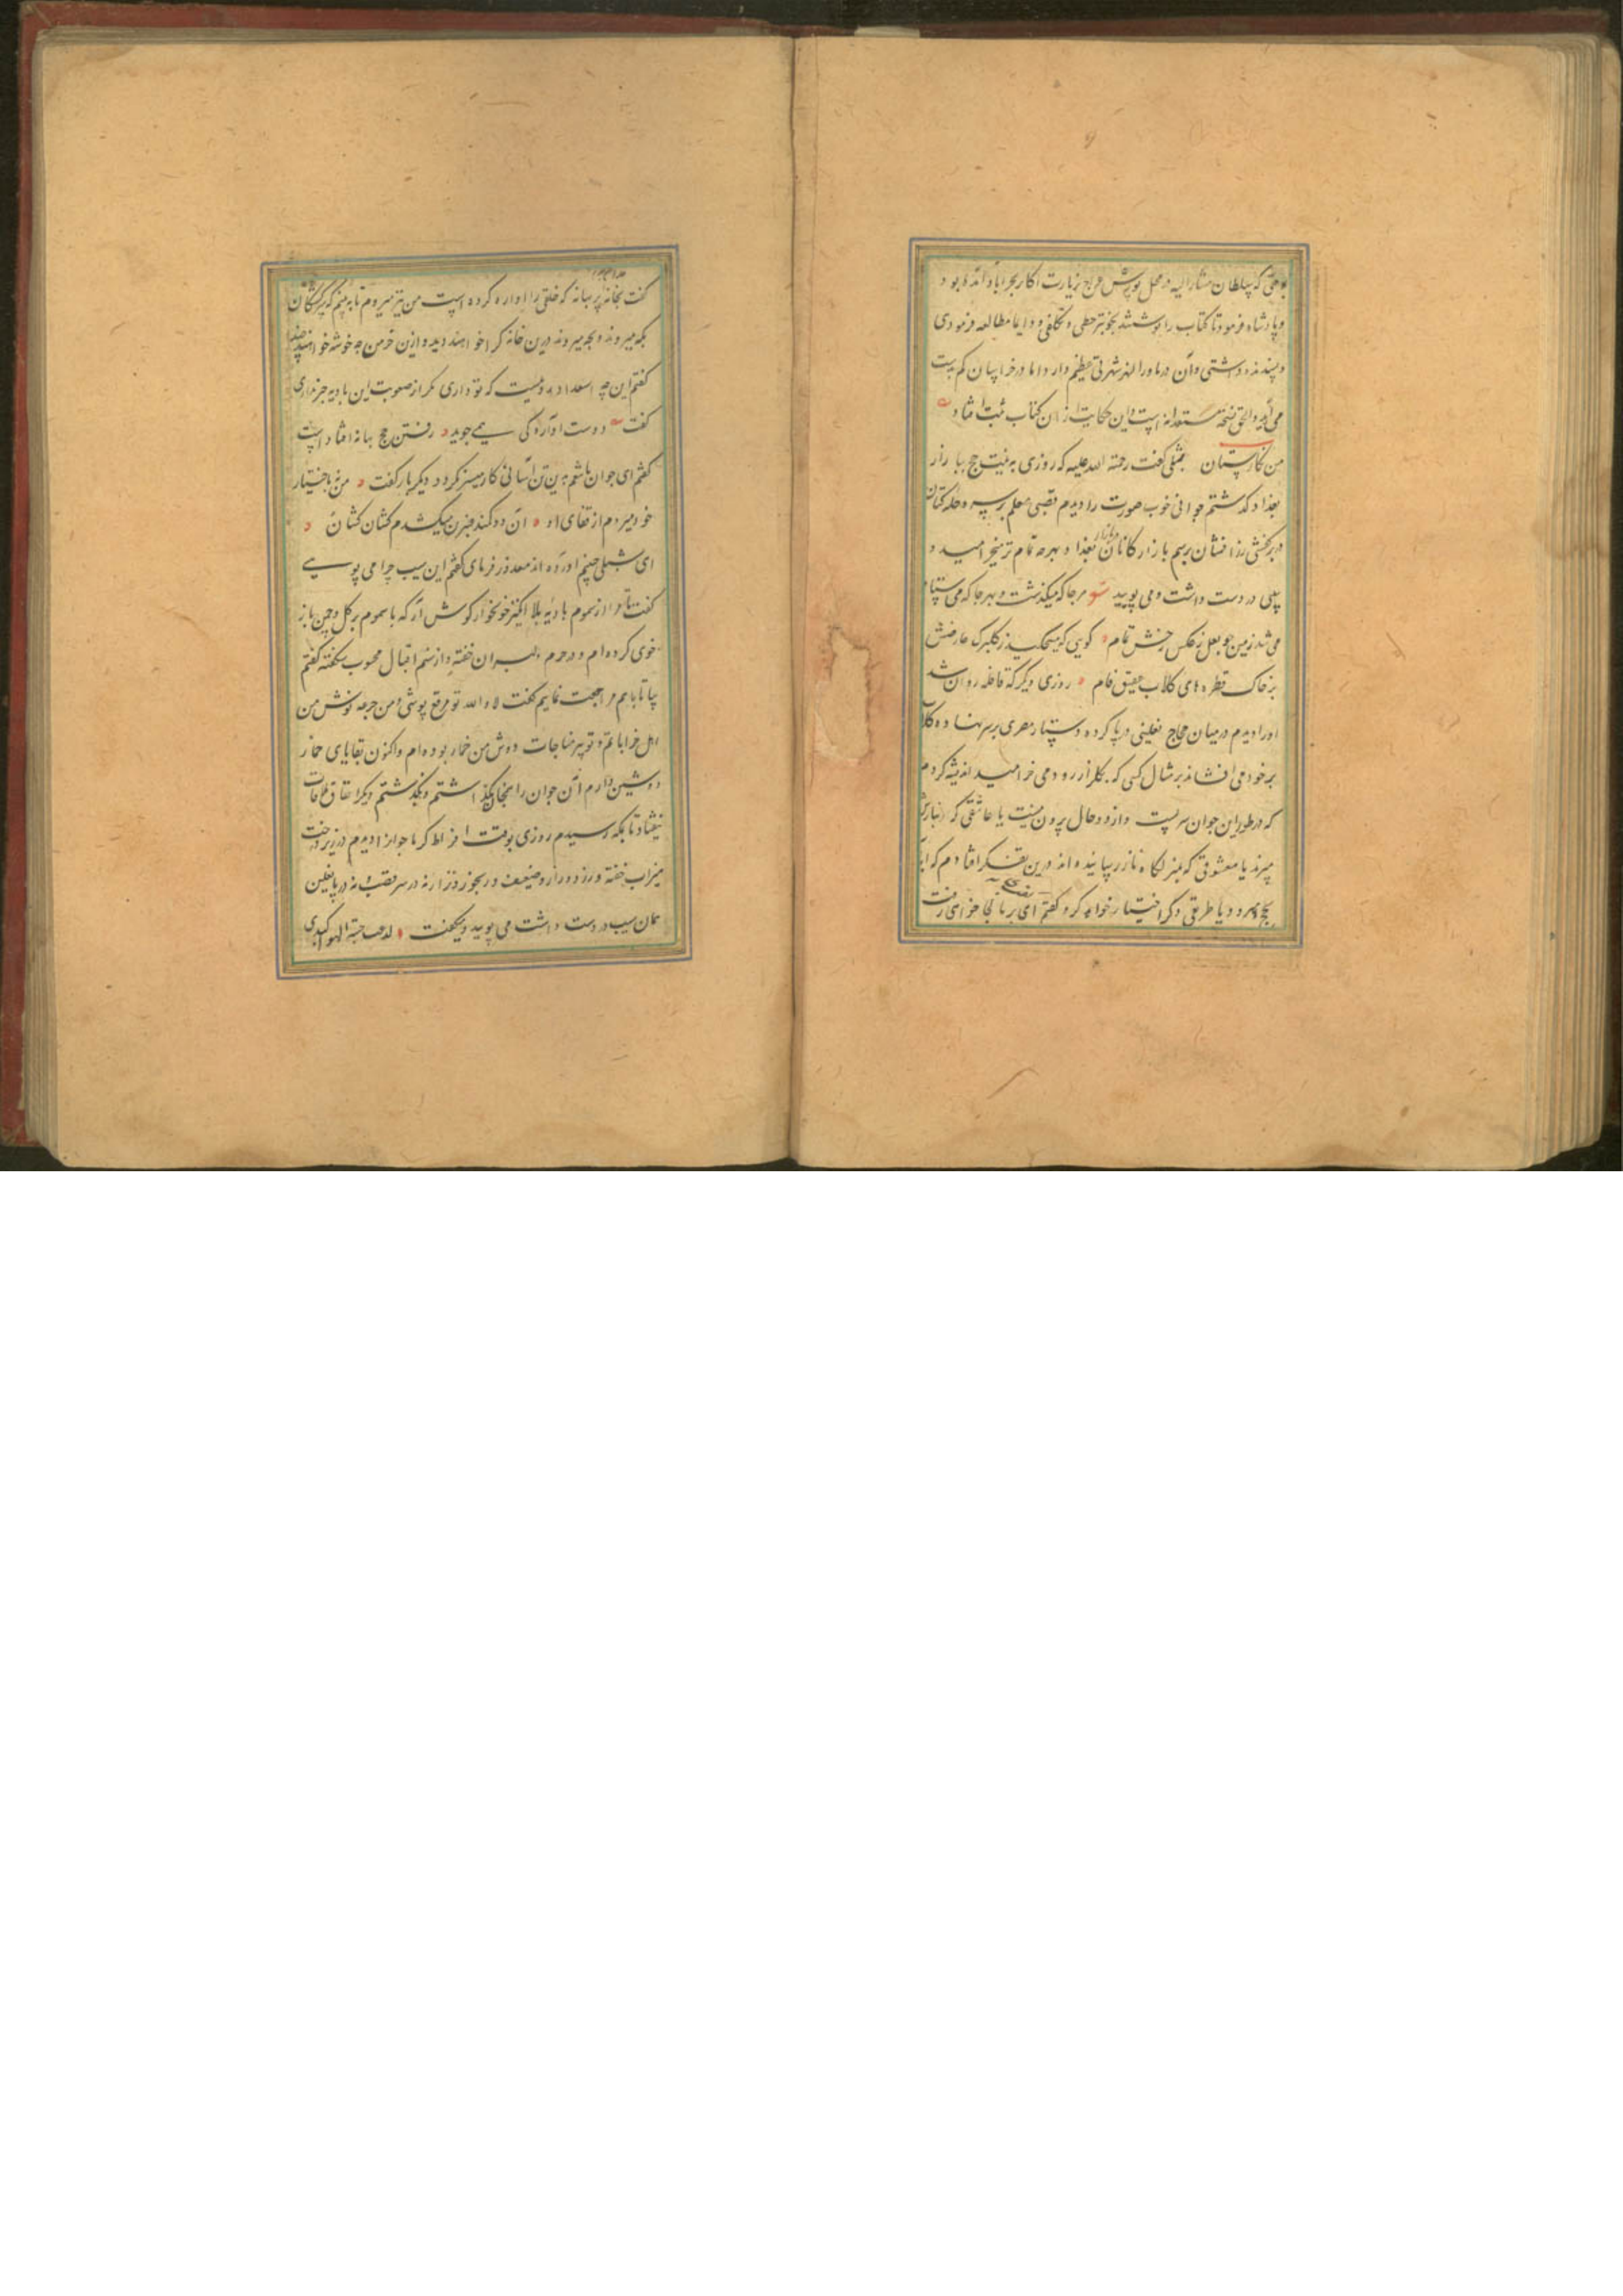 وقتی که سلطان مشارالیه در محل یورش عراق بزیارت اکابر بحراباد آمده بود
و پادشاه فرمود تا کتاب را نوشتند بخوبتر خطی و تکلفی و دایما مطالعه فرمودی
و پسندیده داشتی و آن در ماورا النهر شهرتی عظیم دارد اما در خراسان کم بدست
می آید و الحق نسخه مستعدانه است و این حکایت از آن کتاب ثبت افتاد
من نگارستان شبلی گفت رحمة الله علیه که روزی به نیت حج ببازار
بغداد گذشتم جوانی خوب صورت را دیدم قصبی معلم بر سر و حله کتان
در بر کفشی زرافشان برسم بازارگانان بغداد و بهر چه تمام تر میخرامید و
سیبی در دست داشت و می بویید هر جا که میگذشت و بهر جا که می ستاد
می شد زمین چو لعل ز عکس رخش تمام گویی که میچکید ز گلبرگ عارضش
بر خاک قطره های گلاب عقیق فام روزی دیگر که قافله روان شد
او را دیدم در میان حجاج نعلینی در پا کرده و دستار مصری بر سر نهاده گلاب
بر خود می افشاند بر مثال کسی که بگلزار رود می خرامید اندیشه کردم
که در طور این جوان سریست و از دو حال بیرون نیست یا عاشقی که
میبرند یا معشوقی که بمنزلگاه ناز رسانیده اند درین تفکر افتادم که
بحج میرود یا طریقی دگر اختیار خواهد کرد گفتم ای برنا کجا خواهی رفت
گفت بخانه گفتم بکدام خانه گفت بخانه پر بهانه که خلقی را آواره کرده است من نیز میروم تا به بینم که
بکه میروند و بچه میروند درین خانه کرا خواهند دید و ازین خرمن چه خوشه خواهند چید
گفتم این چه استعداد رهست که تو داری مگر از صعوبت این بادیه خبر نداری
گفت دوست آواره گی همی جوید رفتن حج بهانه افتادست
گفتم ای جوان هاشم بدین تن آسانی کار میسر نگردد دیگر بار گفت من نه باختیار
خود میروم از قفای او آن دو کمند عنبرین میکشدم کشان کشان
ای شبلی چنینم آورده اند معذور فرمای گفتم این سیب چرا می بویی
گفت تا مرا از سموم بادیه بلا انگیز خونخوار گوش آرد که با سموم برگل و چمن باز
خوی کرده ام و در حرم دلبران خفته و از نسیم اقبال محبوب شکفته گفتم
بیا تا با هم مراجعت نماییم گفت لا والله تو مرقع پوشی و من جرعه نوش من
اهل خراباتم و تو پیر مناجات دوش من خمار بوده ام و اکنون بقایای خمار
دوشین دارم آن جوان را بجای بگذاشتم و بگذشتم دیگر اتفاق ملاقات
نیفتاد تا بمکه رسیدم روزی بوقت افراط گرما جوانرا دیدم در زیر درخت
میزاب خفته و زرد و زار و ضعیف و رنجور و نزار نه در سر قصب نه در پا نعلین
همان سیب در دست داشت می بویید و میگفت لدغت حیة الهوی کبدی